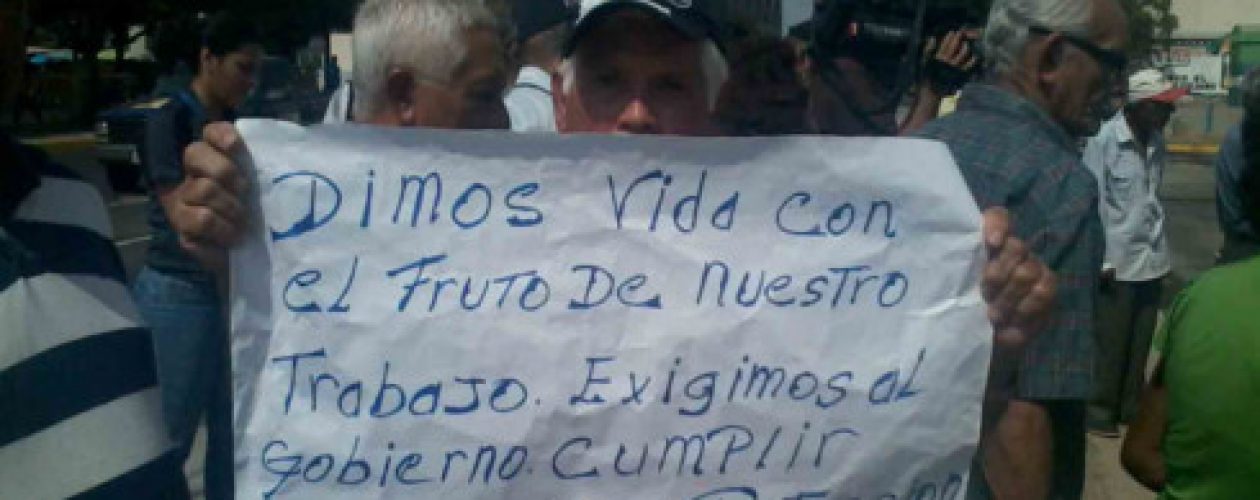 Dimos Vida con
el Fruto De nuestro
Trabajo. Exigimos al
gobierno. Cumplir